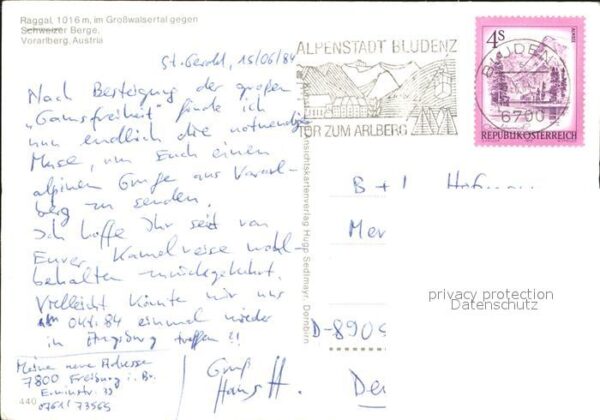 Raggal, 1016 m, im Großwalsertal gegen
Schweizer Berge,
Vorarlberg, Austria
St. Gerold, 15/06/84
Nach Besteigung der großen
„Gamsfreiheit" finde ich
nun endlich die notwendige
Muse, um Euch einen
alpinen Gruß aus Vorarl-
berg zu senden.
Ich hoffe Ihr seid von
Eurer Kamelreise wohl-
behalten zurückgekehrt.
Vielleicht könnte wir uns
im Okt. 84 einmal wieder
in Augsburg treffen !!
Gruß
Hans H.
Meine neue Adresse
7800 Freiburg i. Br.
33
0761/73565
440
Ansichtskartenverlag Hugo Sedlmayr, Dornbirn
ALPENSTADT BLUDENZ
TOR ZUM ARLBERG
BLUDEN
6700
4S
REPUBLIK ÖSTERREICH
B + I Hof
Mer
D-8905
De
privacy protection
Datenschutz